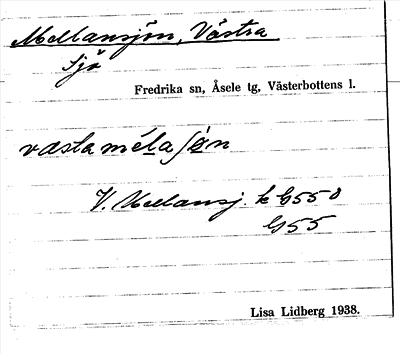 Mellansjön, Västra
Sjö
Fredrika sn, Åsele tg, Västerbottens l.
västa méla
V. Mellansj. k G55 o
G55
Lisa Lidberg 1938.